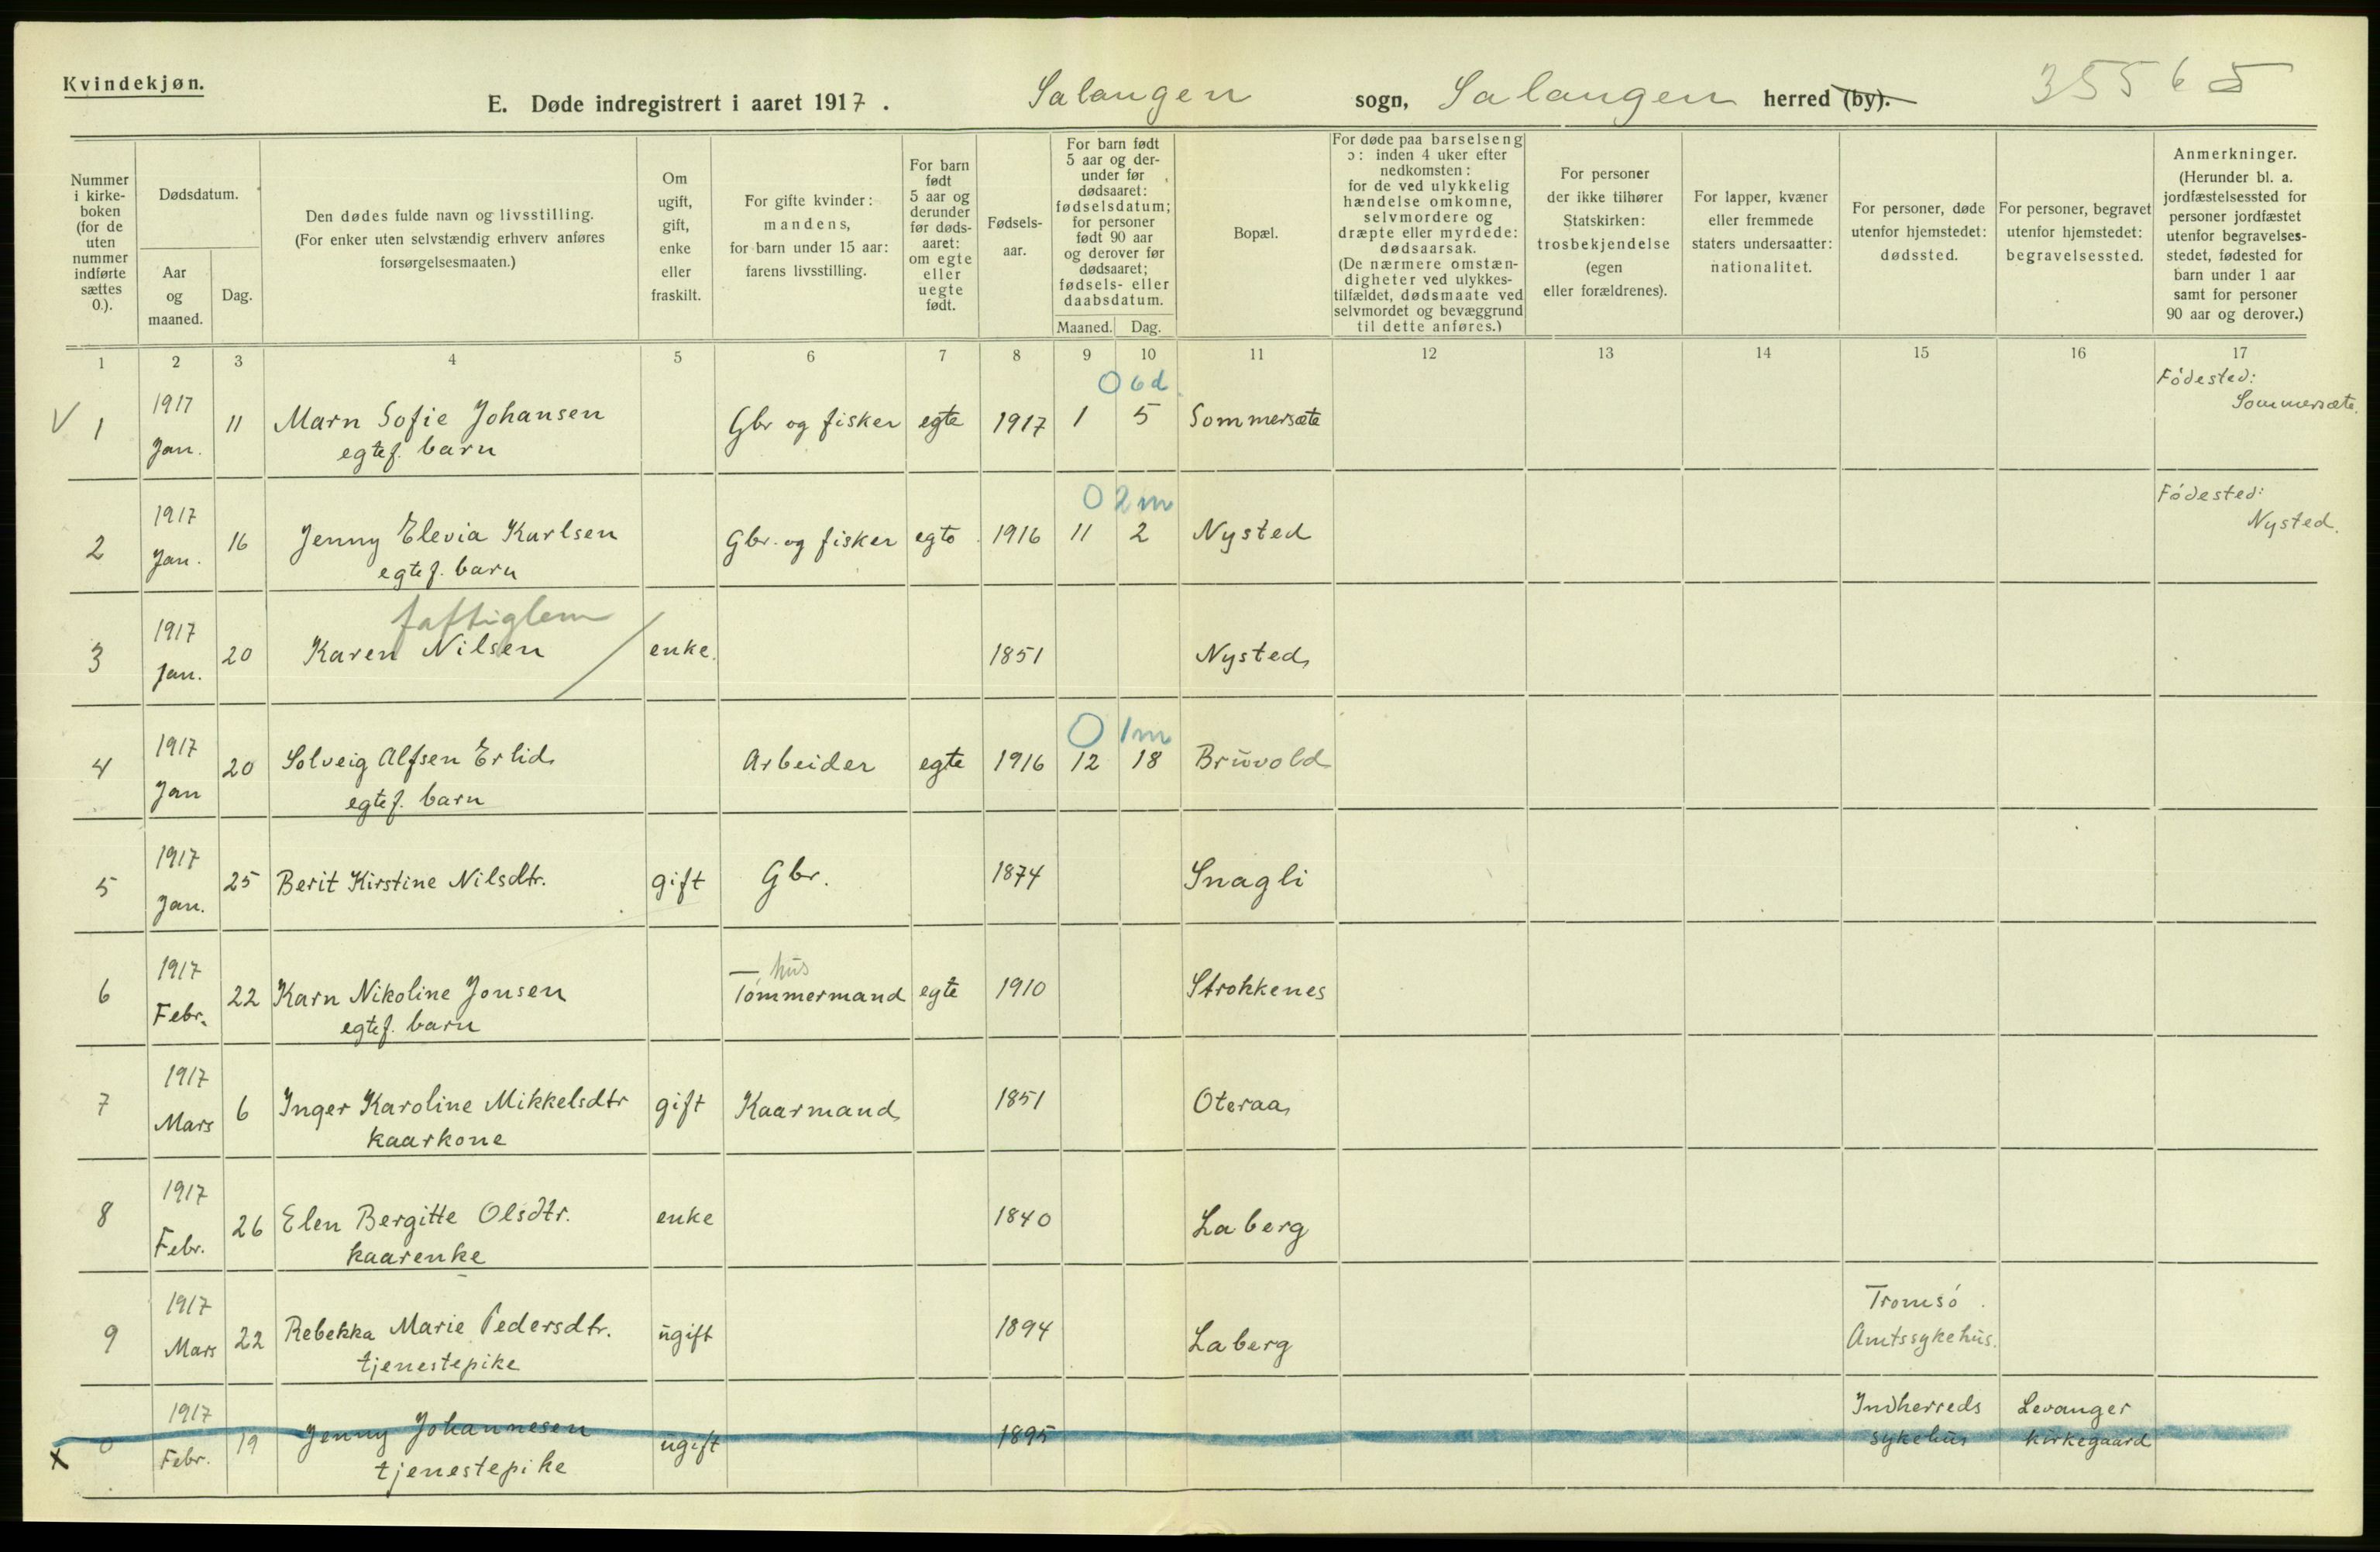 Kvindekjøn.
E. Døde indregistrert i aaret 1917. Salangen sogn, Salangen herred (by). 35565
Nummer i kirke-boken (for de uten nummer indførte sættes 0.).
Dødsdatum.
Aar og maaned.
Dag.
Den dødes fulde navn og livsstilling.
(For enker uten selvstændig erhverv anføres
forsørgelsesmaaten.)
Om ugift, gift, enke eller fraskilt.
For gifte kvinder:
mandens,
for barn under 15 aar:
farens livsstilling.
For barn født 5 aar og derunder før døds-aaret: om egte eller uegte født.
Fødsels-aar.
For barn født 5 aar og der-under før dødsaaret: fødselsdatum; for personer født 90 aar og derover før dødsaaret; fødsels- eller daabsdatum.
Maaned. Dag.
Bopæl.
For døde paa barselseng
ɔ: inden 4 uker efter
nedkomsten:
for de ved ulykkelig
hændelse omkomne,
selvmordere og
dræpte eller myrdede:
dødsaarsak.
(De nærmere omstæn-
digheter ved ulykkes-
tilfældet, dødsmaate ved
selvmordet og bevæggrund
til dette anføres.)
For personer
der ikke tilhører
Statskirken:
trosbekjendelse
(egen
eller forældrenes).
For lapper, kvæner
eller fremmede
staters undersaatter:
nationalitet.
For personer, døde
utenfor hjemstedet:
dødssted.
For personer, begravet
utenfor hjemstedet:
begravelsessted.
Anmerkninger.
(Herunder bl. a.
jordfæstelsessted for
personer jordfæstet
utenfor begravelses-
stedet, fødested for
barn under 1 aar
samt for personer
90 aar og derover.)
1 2 3 4 5 6 7 8 9 10 11 12 13 14 15 16 17
0 6d
V 1 1917 Jan. 11 Marn Sofie Johansen Gbr og fisker egte 1917 1 5 Sommersæte Fødested: Sommersæte.
egtef. barn
0 2m
2 1917 Jan. 16 Jenny Elevia Karlsen Gbr. og fisker egte 1916 11 2 Nysted Fødested: Nysted.
egtef. barn
faftiglem
3 1917 Jan. 20 Karen Nilsen enke. 1851 Nysted
0 1m
4 1917 Jan 20 Solveig Alfsen Erlid Arbeider egte 1916 12 18 Brūvold
egtef. barn
5 1917 Jan. 25 Berit Kirstine Nilsdtr. gift Gbr. 1874 Snagli
hūs
6 1917 Febr. 22 Karn Nikoline Jonsen Tømmermand egte 1910 Strokkenes
egtef. barn
7 1917 Mars 6 Inger Karoline Mikkelsdtr gift Kaarmand 1851 Oteraa
kaarkone
8 1917 Febr. 26 Elen Bergitte Olsdtr. enke 1840 Laberg
kaarenke
9 1917 Mars 22 Rebekka Marie Pedersdtr. ūgift 1894 Laberg Tromsø Amtssykehūs.
tjenestepike
x 0 1917 Febr. 19 Jenny Johannesen ūgift 1895 Indherreds sykehūs Levanger kirkegaard
tjenestepike